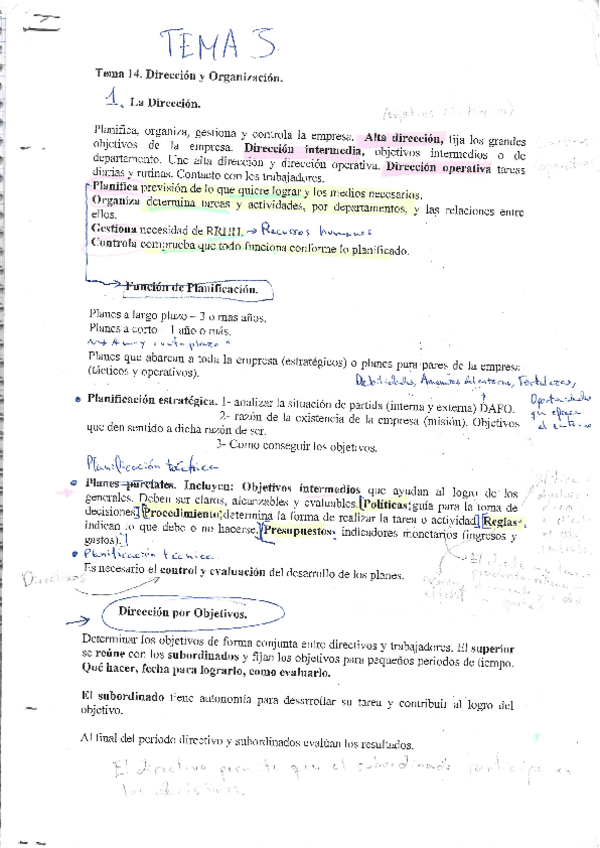 TEMA 5
Tema 14. Dirección y Organización.
1. La Dirección.
Planifica, organiza, gestiona y controla la empresa. Alta dirección, fija los grandes
objetivos de la empresa. Dirección intermedia, objetivos intermedios o de
departamento. Une alta dirección y dirección operativa. Dirección operativa tareas
diarias y rutinas. Contacto con los trabajadores.
Planifica previsión de lo que quiere lograr y los medios necesarios.
Organiza determina tareas y actividades, por departamentos, y las relaciones entre
ellos.
Gestiona necesidad de RRHH. → Recursos humanos
Controla comprueba que todo funciona conforme lo planificado.
Función de Planificación.
Planes a largo plazo – 3 o mas años.
Planes a corto – 1 año o más.
Planes que abarcan a toda la empresa (estratégicos) o planes para pares de la empresa
(tácticos y operativos).
Debilidades, Amenazas del entorno, Fortalezas,
Oportunidades
que ofrece
el entorno
Planificación estratégica. 1- analizar la situación de partida (interna y externa) DAFO.
2- razón de la existencia de la empresa (misión). Objetivos
que den sentido a dicha razón de ser.
3- Como conseguir los objetivos.
Planificación táctica
Planes parciales. Incluyen: Objetivos intermedios que ayudan al logro de los
generales. Deben ser claros, alcanzables y evaluables. Políticas guía para la toma de
decisiones. Procedimiento determina la forma de realizar la tarea o actividad. Reglas
indican lo que debe o no hacerse. Presupuestos, indicadores monetarios (ingresos y
gastos).
Planificación técnica.
Es necesario el control y evaluación del desarrollo de los planes.
Directivos
Dirección por Objetivos.
Determinar los objetivos de forma conjunta entre directivos y trabajadores. El superior
se reúne con los subordinados y fijan los objetivos para pequeños periodos de tiempo.
Qué hacer, fecha para lograrlo, como evaluarlo.
El subordinado tiene autonomía para desarrollar su tarea y contribuir al logro del
objetivo.
Al final del periodo directivo y subordinados evalúan los resultados.
El directivo permite que el subordinado participe en
las decisiones.